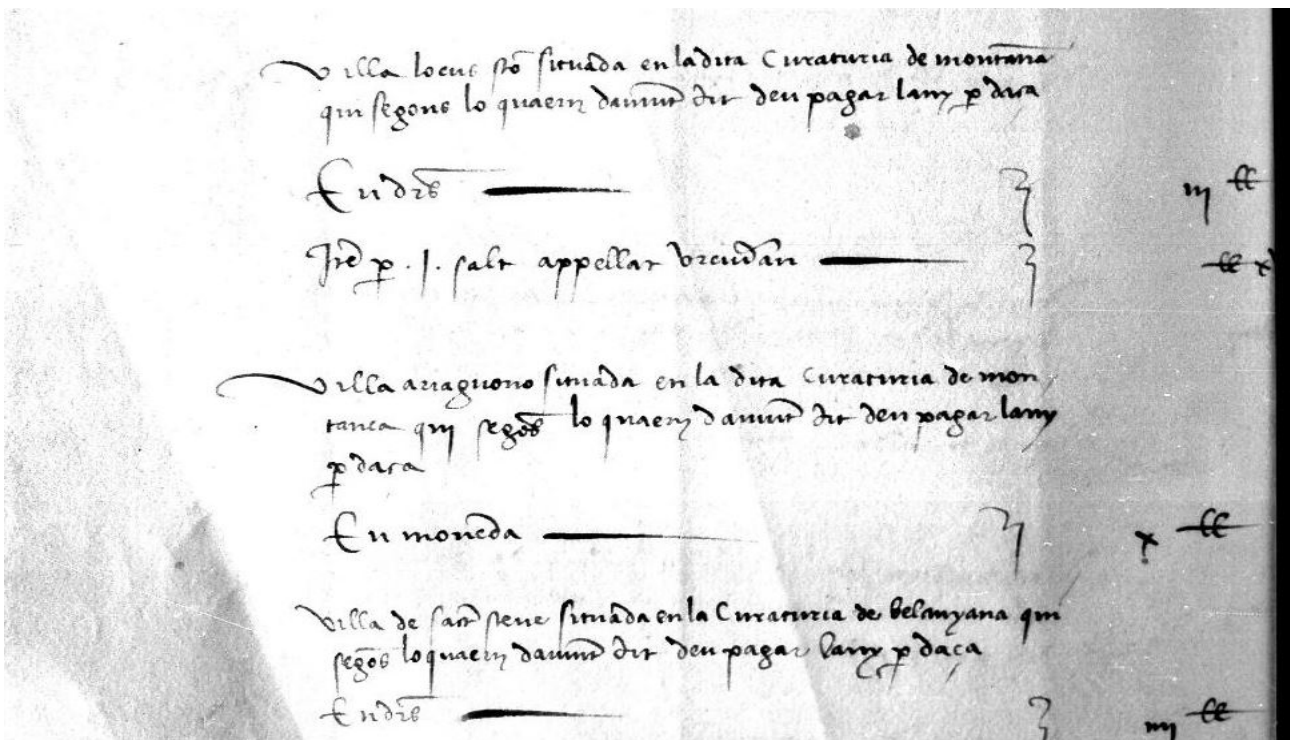 Villa locus sto situada en la dita Curaturia de montana
qui segons lo quaern damunt dit deu pagar lany p daça
En drs iij ll
Ite p .j. salt appellat ll x
Villa ariagnono situada en la dita Curaturia de mon
tanea qui segos lo quaern damunt dit deu pagar lany
p daça
En moneda x ll
Villa de sact steve situada en la Curaturia de belanyana qui
segos lo quaern damunt dit deu pagar lany p daça
En drs iiij ll